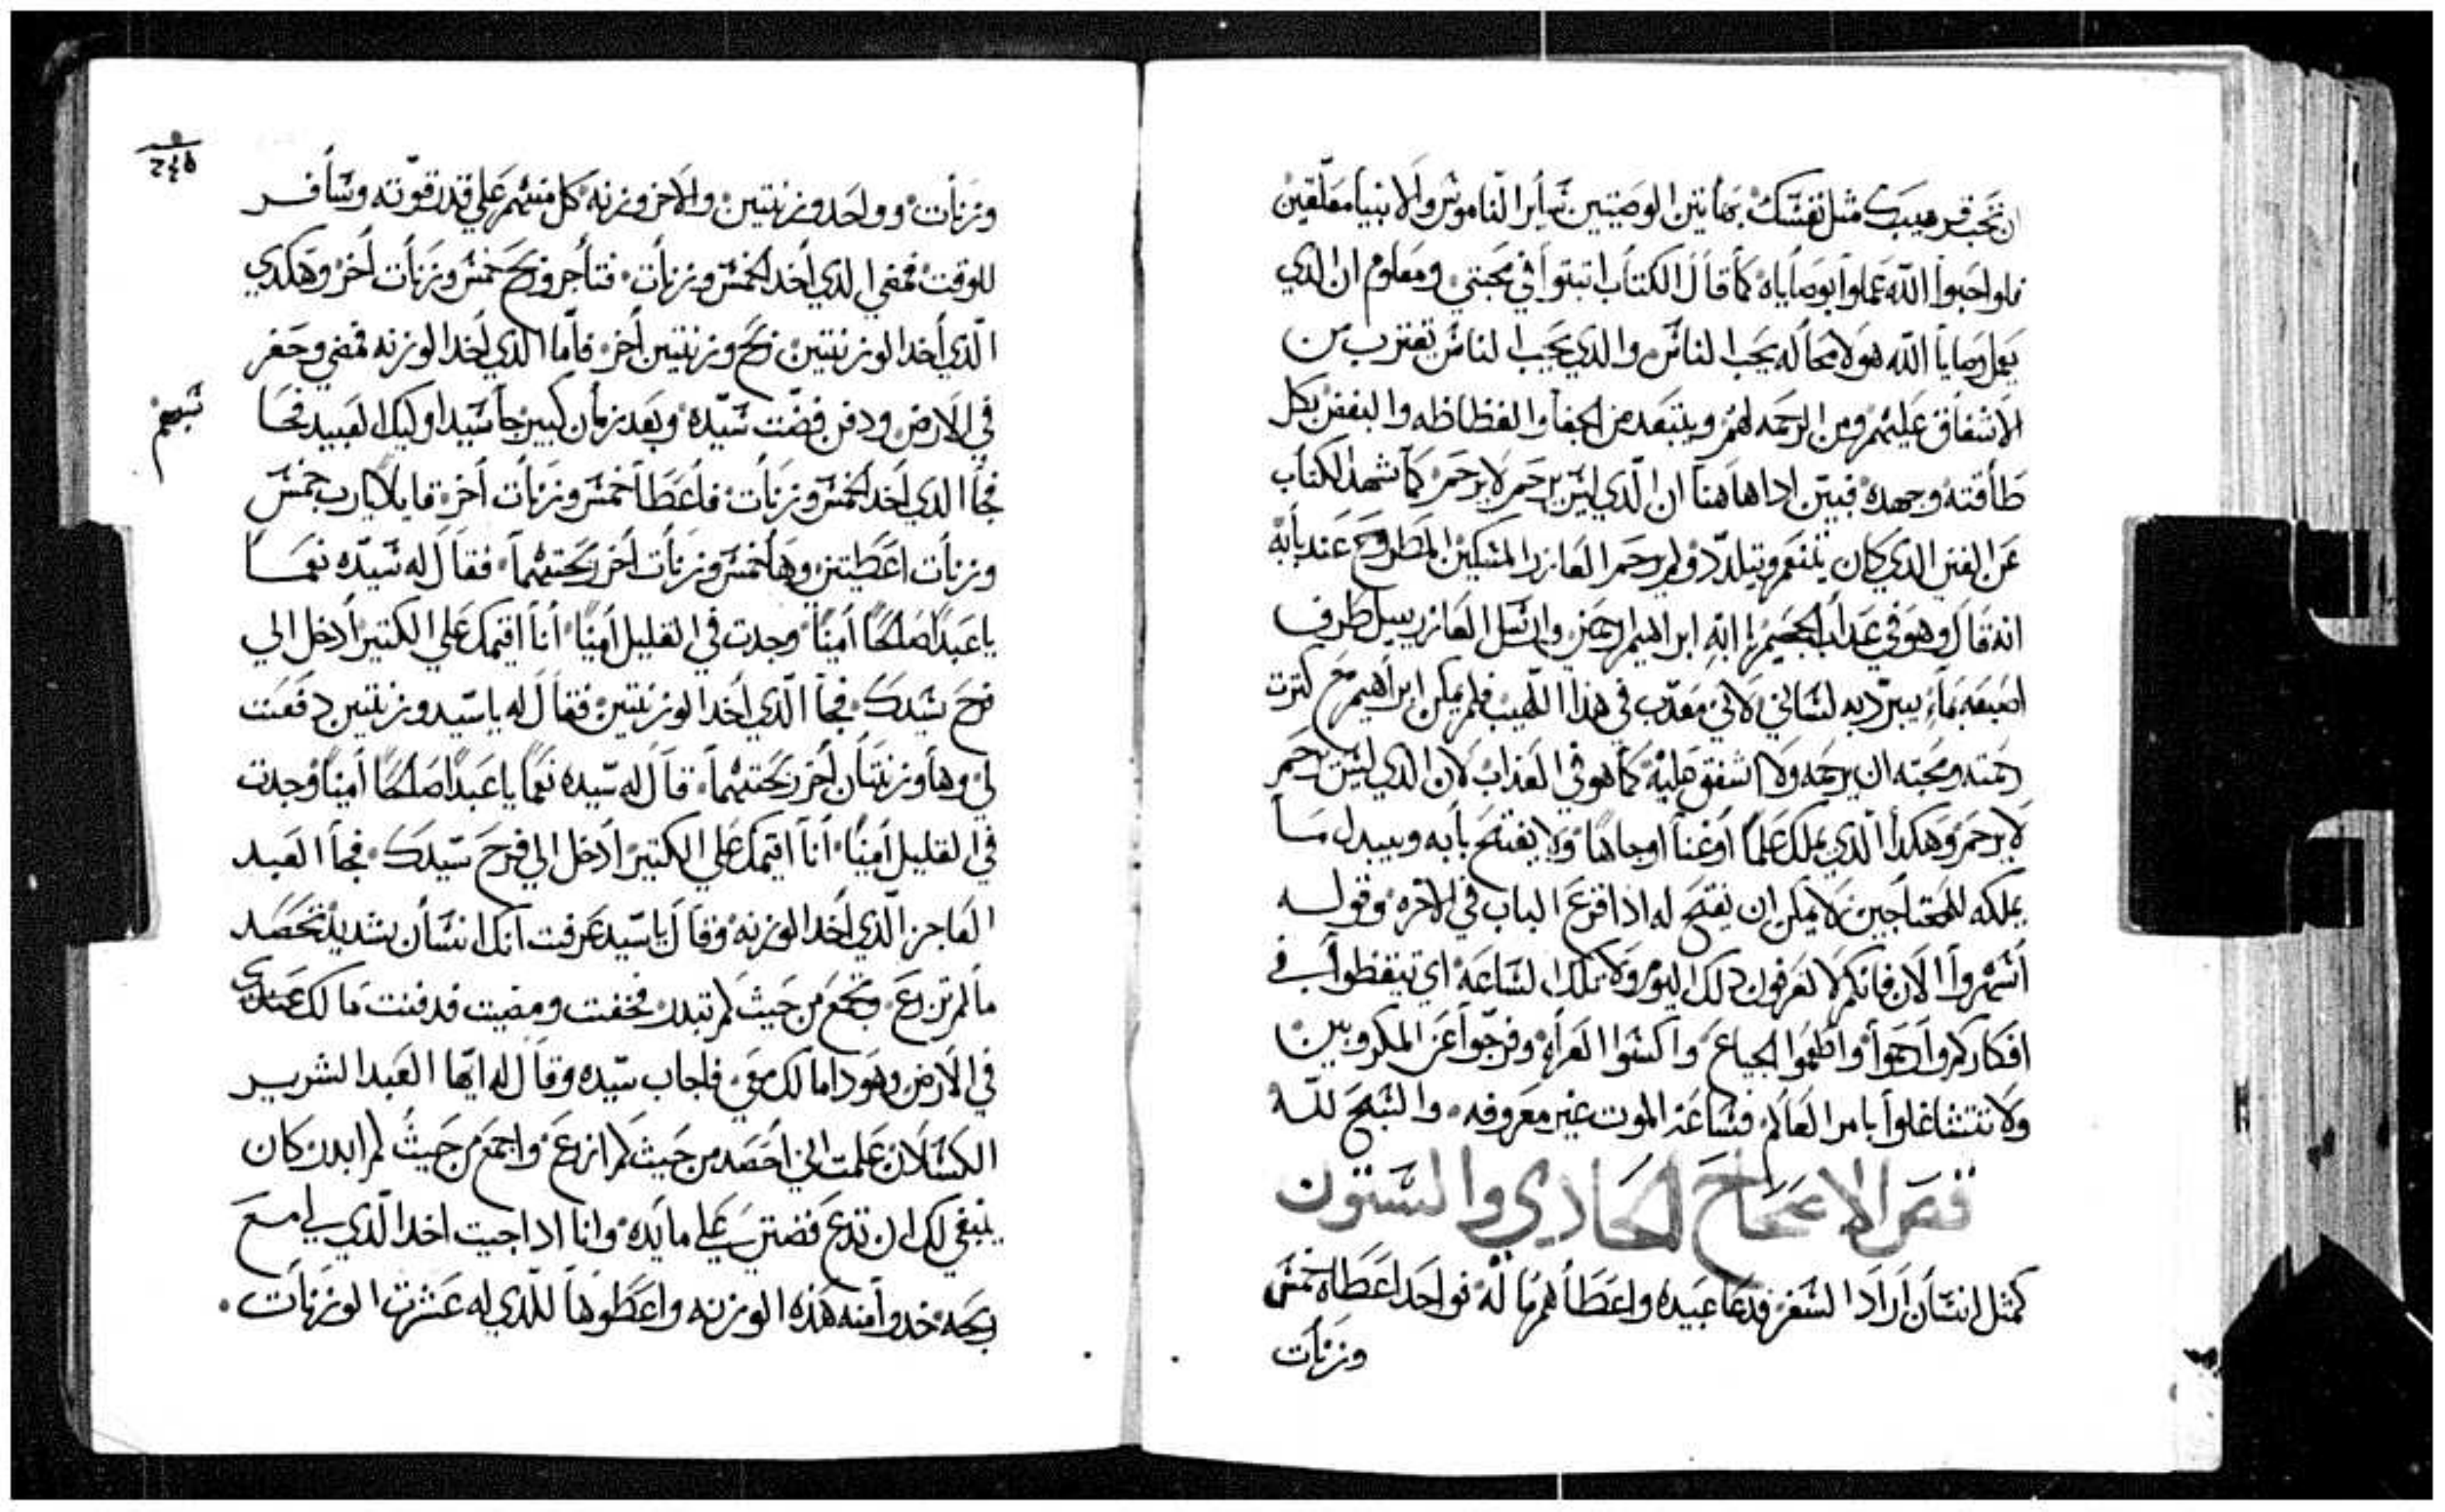 ان تحب قريبك مثل نفسك بهاتين الوصيتين ساير الناموس والانبيا معلقين
فلو احبوا الله عملوا بوصاياه كما قال الكتاب اتبتوا في محبتي ومعلوم ان الذي
يعمل وصايا الله هو لا محاله يحب الناس والذي يحب الناس تقترب من
الاشفاق عليهم ومن الرحمه لهم ويبتعد من الجفا والفظاظه والبغض بكل
طاقته وجهده فبين ادا هاهنا ان الذي ليس يرحم لا يرحم كما شهد الكتاب
عن الغني الذي كان يتنعم ويتلدد ولم يرحم العازر المسكين المطروح عند بابه
انه قال وهو في عداب الجحيم يا ابه ابراهيم ارحمني وارسل العازر يبل طرف
اصبعه بماء يبرد به لساني لاني معدب في هذا اللهيب فلم يمكن ابراهيم مع كترت
رحمته ومحبته ان يرحمه ولا اشفق عليه كما هو في العذاب لان الذي ليس يرحم
لا يرحم وهكدا الذي يملك علما او غنا او جاها ولا يفتح بابه ويبدل ما
يملكه للمحتاجين لا يمكن ان يفتح له ادا قرع الباب في الاخره وقوله
اسهروا الان فانكم لا تعرفون دلك اليوم ولا تلك الساعه اي تيقظوا في
افكاركم وارحموا واطعموا الجياع واكسوا العراه وفرجوا عن المكروبين
ولا تتشاغلوا بامر العالم فساعة الموت غير معروفه والسبح لله
فص الاصحاح الحادي والستون
كمثل انسان اراد السفر فدعا عبيده واعطاهم ما له فواحد اعطاه خمس
وزنات
٢٤٥
وزنات وواحد وزنتين والاخر وزنه كل منهم علي قدر قوته وسافر
للوقت فمضي الذي اخد الخمس وزنات فتاجر وربح خمس وزنات اخر وهكدي
الذي اخد الوزنتين ربح وزنتين اخر فاما الذي اخد الوزنه فمضي وحفر
في الارض ودفن فضت سيده وبعد زمان كبير جا سيد اوليك العبيد فحا
سبهم
فجا الذي اخد الخمس وزنات فاعطا خمس وزنات اخر قايلا يا رب خمس
وزنات اعطيتني وها خمس وزنات اخر ربحتهما فقال له سيده نعما
يا عبدا صالحا امينا وجدت في القليل امينا انا اقيمك علي الكتير ادخل الي
فرح سيدك فجا الذي اخد الوزنتين فقال له يا سيد وزنتين دفعت
لي وها وزنتان اخر ربحتهما قال له سيده نعما يا عبدا صالحا امينا وجدت
في القليل امينا انا اقيمك علي الكتير ادخل الي فرح سيدك فجا العبد
العاجز الذي اخد الوزنه وقال يا سيد عرفت انك انسان شديد تحصد
ما لم تزرع وتجمع من حيث لم تبدر فخفت ومضيت فدفنت مالك عندي
في الارض وهودا مالك معي فاجاب سيده وقال له ايها العبد الشرير
الكسلان علمت اني احصد من حيث لم ازرع واجمع من حيث لم ابدر كان
ينبغي لك ان تدع فضتي علي مايده وانا ادا جيت اخد الذي لي مع
ربحه خدوا منه هذه الوزنه واعطوها للذي له عشرت الوزنات